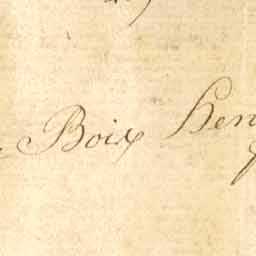 Boix Hen